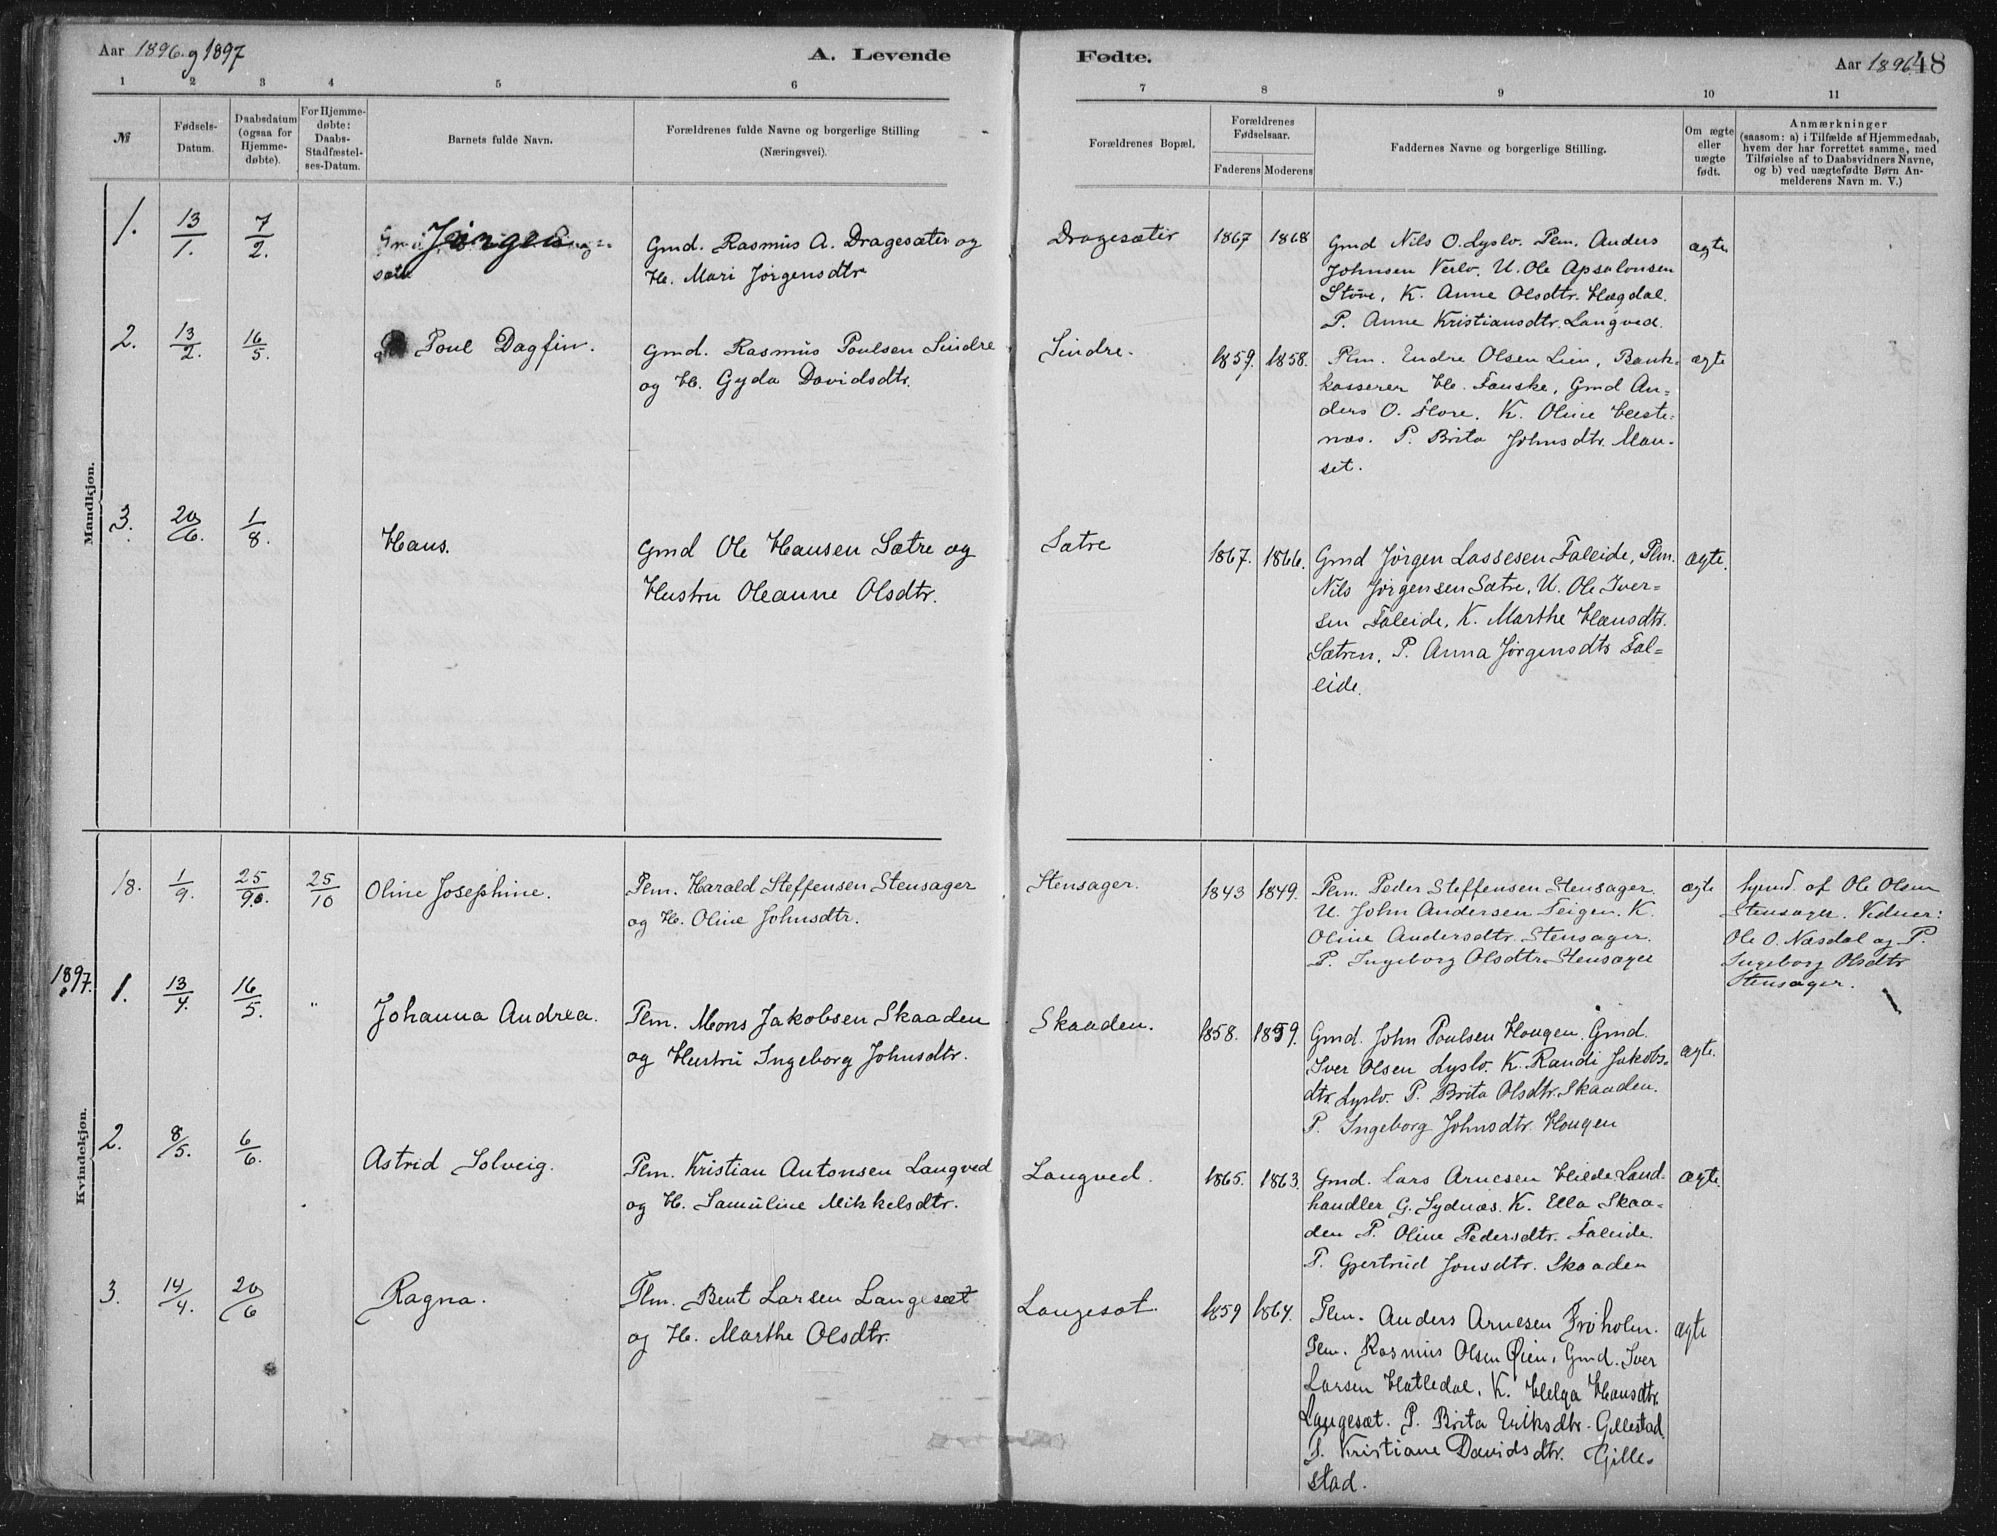 Aar 1896. og 1897
A. Levende
Fødte.
Aar 1896
48
1 2 3 4 5 6 7 8 9 10 11
№
Fødsels-
Datum.
Daabsdatum
(ogsaa for
Hjemme-
døbte).
For Hjemme-
døbte:
Daabs-
Stadfæstel-
ses-Datum.
Barnets fulde Navn.
Forældrenes fulde Navne og borgerlige Stilling
(Næringsvei).
Forældrenes Bopæl.
Forældrenes
Fødselsaar.
Faderens Moderens
Faddernes Navne og borgerlige Stilling.
Om ægte
eller
uægte
født.
Anmærkninger
(saasom: a) i Tilfælde af Hjemmedaab,
hvem der har forrettet samme, med
Tilføielse af to Daabsvidners Navne,
og b) ved uægtefødte Børn An-
melderens Navn m. V.)
Mandkjøn.
1. 13/1. 7/2. Jørgen
Gmd. Rasmus A. Dragesæter og
H. Mari Jørgensdtr
Dragesæter 1867 1868
Gmd Nils O. Lyslv. Plm. Anders
Johnsen Verlv. U. Ole Apsalonsen
Støve, K. Anne Olsdtr. Hægdal.
P. Anne Kristiansdtr. Langved.
ægte
2. 13/2. 16/5. Poul Dagfin.
Gmd. Rasmus Poulsen Sindre
og H. Gyda Davidsdtr.
Sindre. 1859. 1858.
Plm. Endre Olsen Lien, Bank-
kasserer H. Fauske, Gmd An-
ders O. Flore. K. Oline Heste-
næs. P. Brita Johnsdtr. Mau-
set.
ægte
3. 20/6. 1/8. Hans.
Gmd Ole Hansen Sætre og
Hustru Oleanne Olsdtr.
Sætre 1867. 1866.
Gmd Jørgen Lassesen Faleide, Plm.
Nils Jørgensen Sætre, U. Ole Iver-
sen Faleide, K. Marthe Hansdtr.
Sætren, P. Anna Jørgensdtr Fal-
eide.
ægte.
18. 1/9. 25/9. 25/10 Oline Josephine.
Plm. Harald Steffensen Stensager
og H. Oline Johnsdtr.
Stensager. 1843 1849.
Plm. Peder Steffensen Stensager.
U. John Andersen Feigen. K.
Oline Andersdtr. Stensager.
P. Ingeborg Olsdtr. Stensager
ægte
hjmd. af Ole Olsen
Stensager. Vidner:
Ole O. Næsdal og P.
Ingeborg Olsdtr
Stensager.
1897.
Kvindekjøn.
1. 13/4. 16/5. " Johanna Andrea.
Plm. Mons Jakobsen Skaaden
og Hustru Ingeborg Johnsdtr.
Skaaden. 1858. 1859.
Gmd. John Poulsen Hougen. Gmd.
Iver Olsen Lyslv. K. Randi Jakobs-
dtr Lyslv. P. Brita Olsdtr. Skaaden.
P. Ingeborg Johnsdtr. Hougen
ægte.
2. 8/5. 6/6. Astrid Solveig.
Plm. Kristian Antonsen Langved
og H. Samuline Mikkelsdtr.
Langved. 1865. 1863.
Gmd. Lars Arnesen Hilde Land-
handler G. Sydnæs. K. Ella Skaa-
den P. Oline Pedersdtr. Faleide.
P. Gjertrud Jonsdtr. Skaaden
ægte.
3. 14/4. 20/6 Ragna.
Plm. Bent Larsen Langesæt
og H. Marthe Olsdtr.
Langesæt. 1859 1864.
Plm. Anders Arnesen Frøholm.
Plm. Rasmus Olsen Øien, Gmd. Iver
Larsen Hatledal, K. Helga Hansdtr.
Langesæt. P. Brita Eriksdtr. Gillestad
P. Kristiane Davidsdtr. Gille-
stad.
ægte